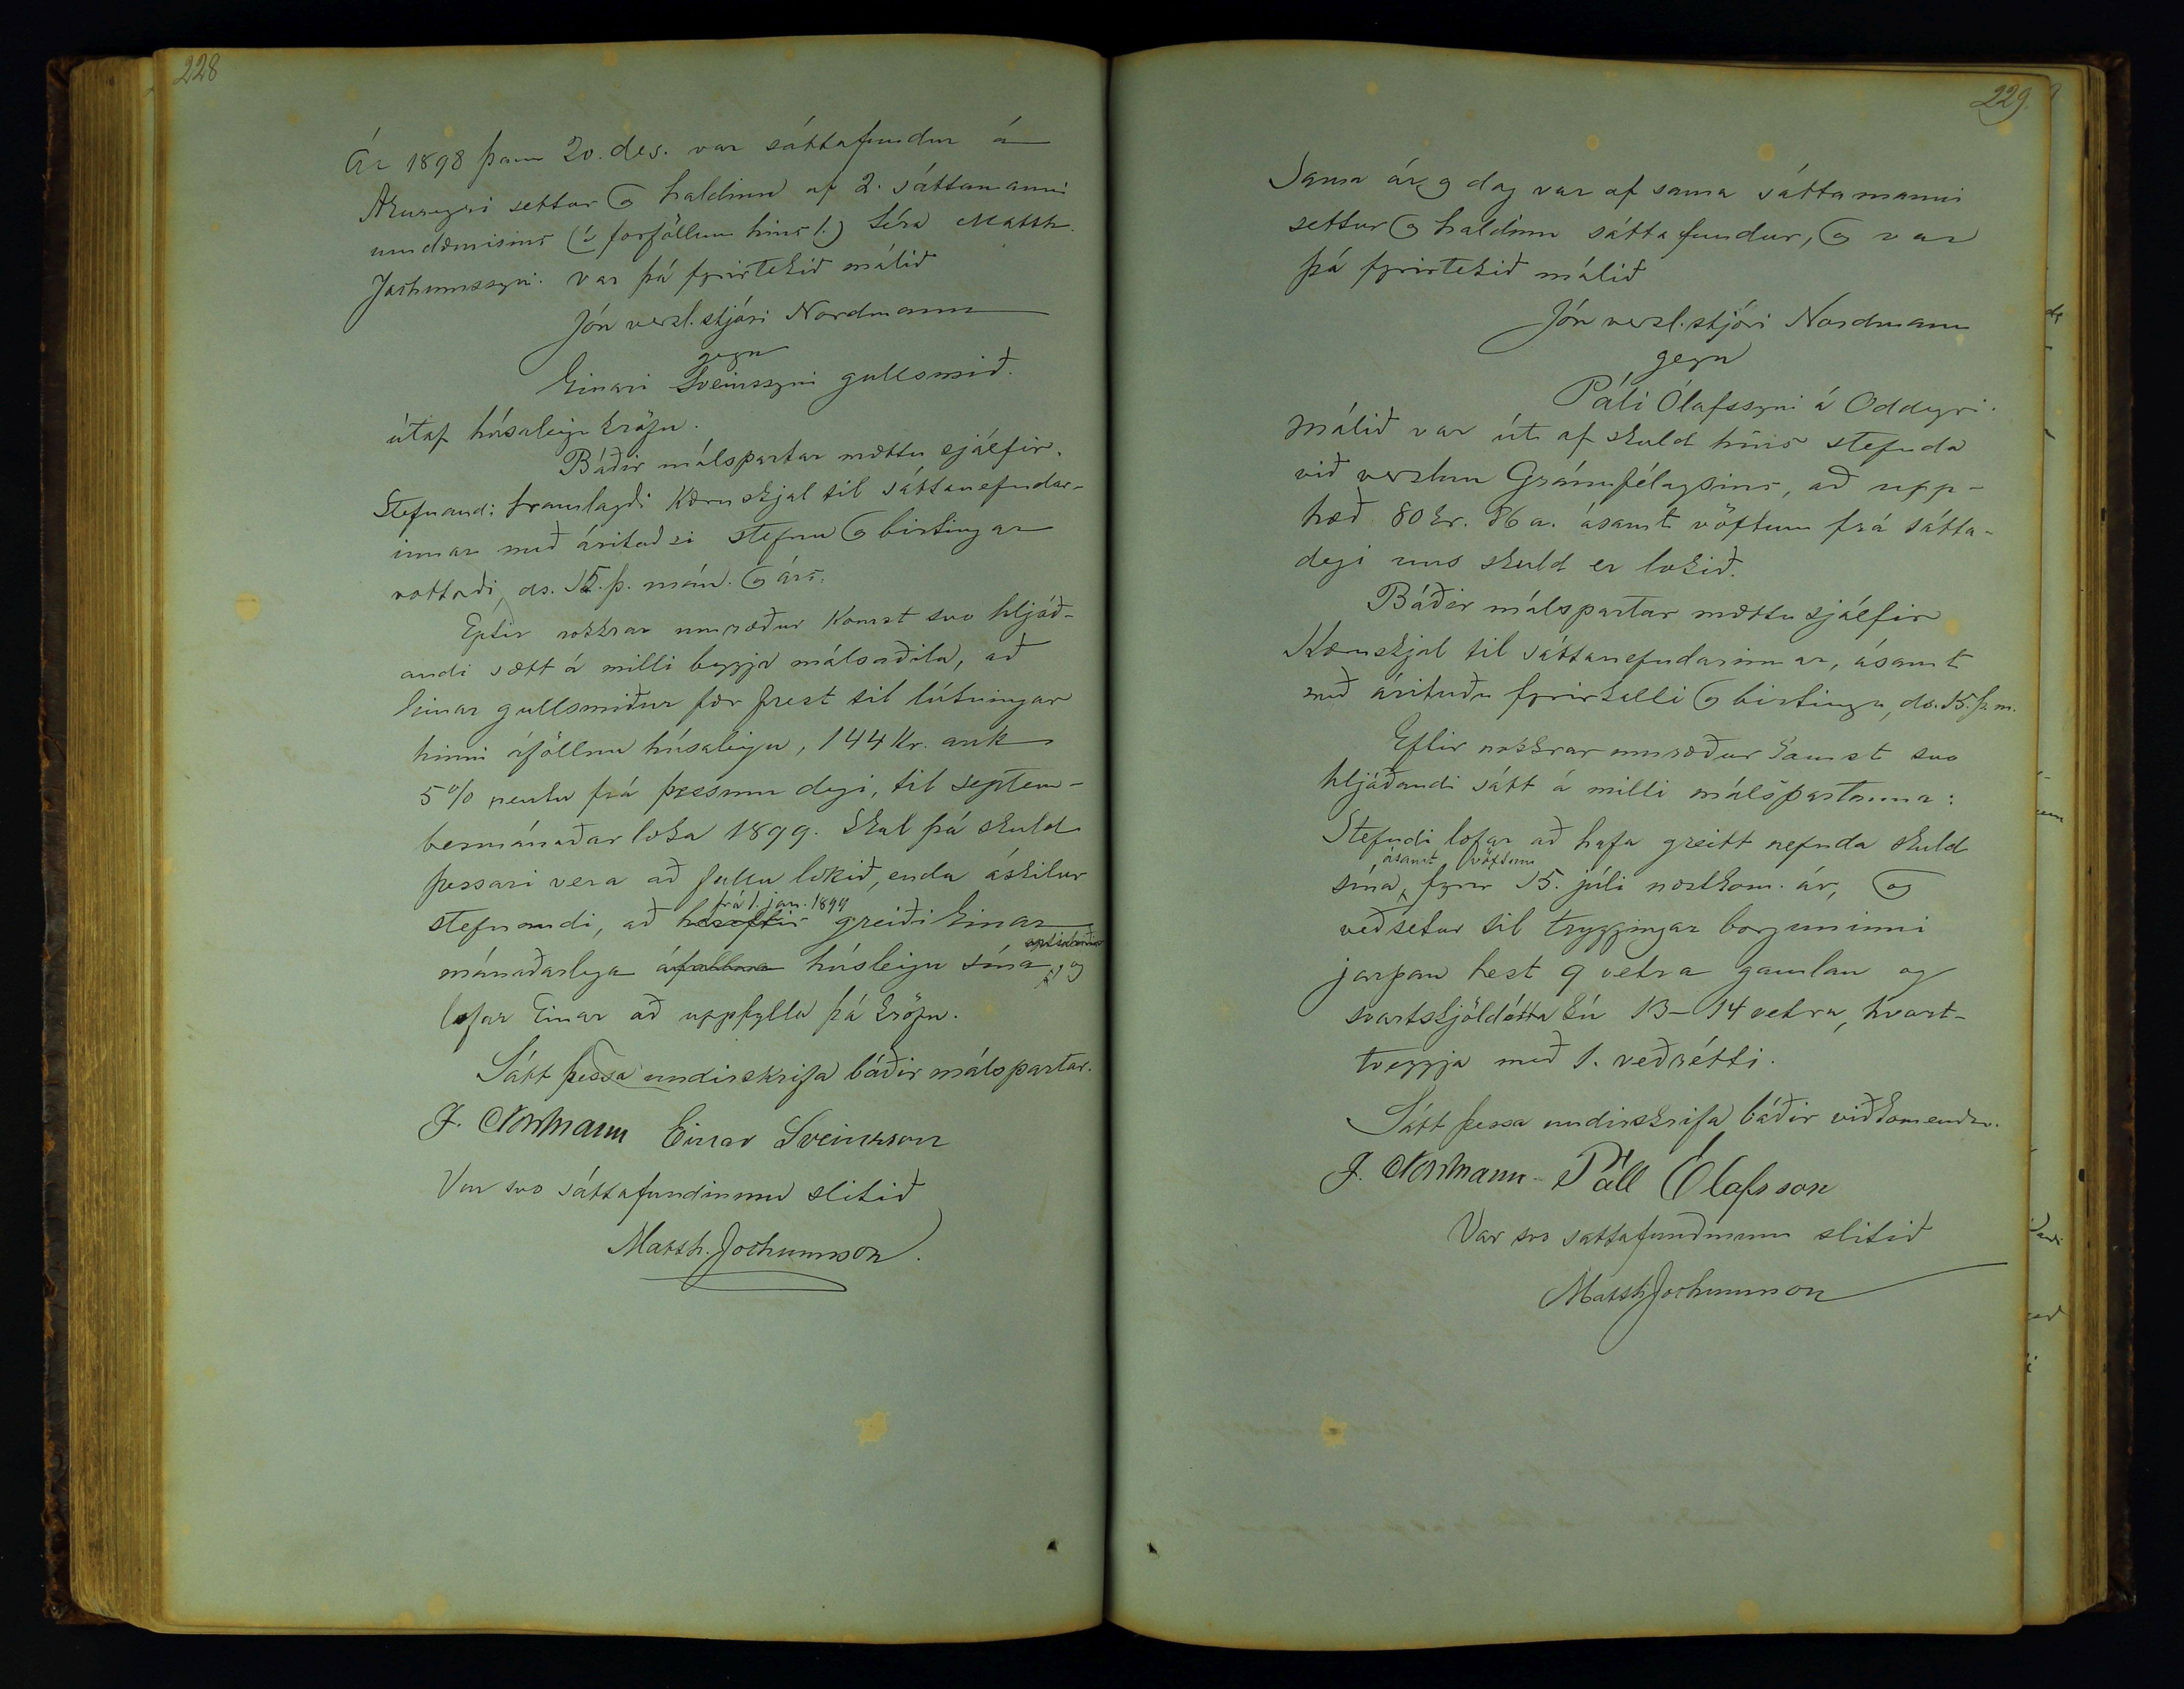 228
Ár 1898 þann 20. des. var sáttafundur á
Akureyri settur og haldinn af 2. sáttamanni
umdæmisins (í forföllum hins 1.) séra Matth.
Jochumssyni. Var þá fyrirtekið málið
Jón verzl.stjóri Nordmann
gegn
Einari Sveinssyni gullsmið.
útaf húsaleigu kröfu.
Báðir málspartar mættu sjálfir.
Stefnandi framlagði Kæruskjal til sáttanefndar-
innar með áritaðri stefnu og birtingar
vottorði, ds. 15. þ. mán. og árs.
Eptir nokkrar umræður Komst svo hljóð-
andi sætt á milli beggja málsaðila, að
Einar gullsmiður fær frest til lútningar
hinni áföllnu húsaleigu, 144 Kr. auk
5% rentu frá þessum degi, til septem-
bermánaðarloka 1899. Skal þá skuld
þessari vera að fullu lokið, enda áskilur
frá 1. jan. 1899
stefnandi, að héreftir greiði Einar
mánaðarlega áfallna húsleigu sína, og
lofar Einar að uppfylla þá kröfu.
Sátt þessa undirskrifa báðir málspartar.
J. Norðmann Einar Sveinsson
Var svo sáttafundinum slitið
Matth. Jochumsson.
229.
Sama ár og dag var af sama sáttamanni
settur og haldinn sáttafundur, og var
þá fyrirtekið málið
Jón verzl.stjóri Nordmann
gegn
Páli Ólafssyni á Oddeyri.
Málið var út af skuld hins stefnda
við verzlun Gránufélagsins, að upp-
hæð 80 kr. 86 a. ásamt vöxtum frá sátta-
degi uns skuld er lokið.
Báðir málspartar mættu sjálfir
Kæruskjal til sáttanefndarinnar, ásamt
með árituðu fyrirkalli og birtingu, ds. 15. þ. m.
Eftir nokkrar umræður komst svo
hljóðandi sátt á milli málspartanna:
Stefndi lofar að hafa greitt nefnda skuld
ásamt vöxtum
sína, fyrir 15. júli næstkom. ár, og
veðsetur til tryggingar borguninni
jarpan hest 9 vetra gamlan og
svartskjöldótta kú 13-14 vetra, hvort-
tveggja með 1. veðrétti.
Sátt þessa undirskrifa báðir viðkomendur.
J. Norðmann Páll Ólafsson
Var svo sattafundinum slitið
Matth Jochumsson